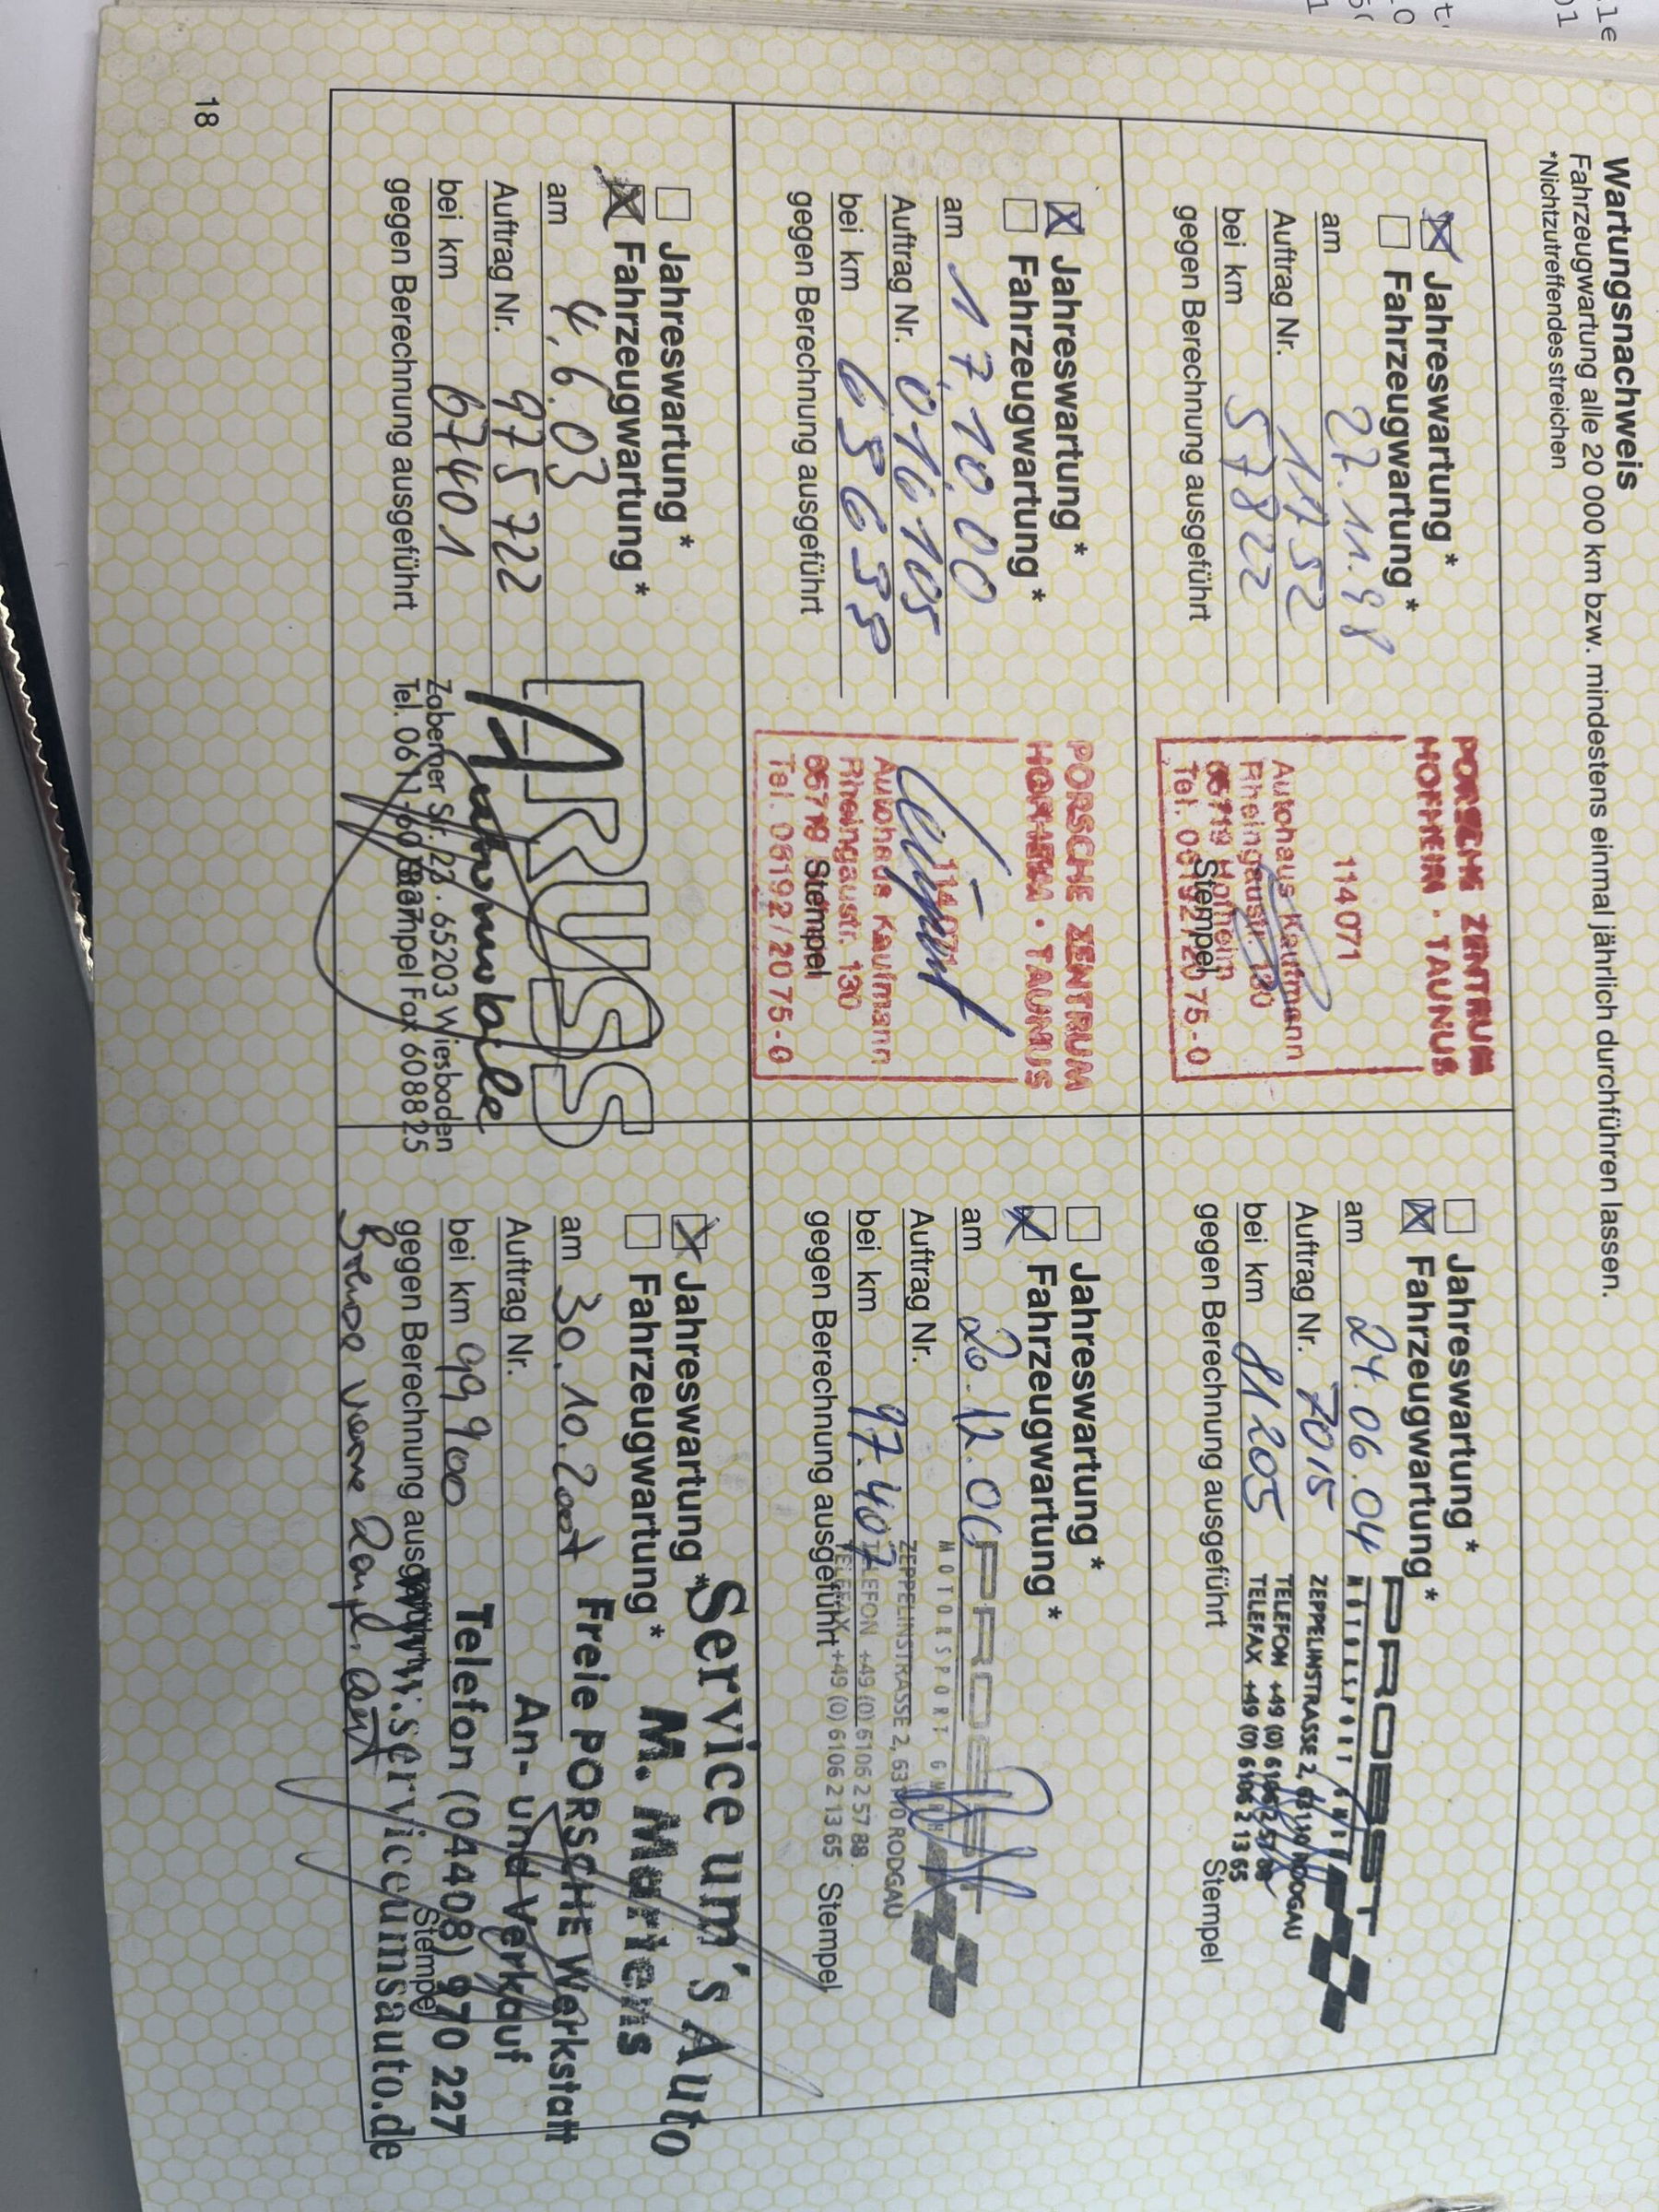 Wartungsnachweis
Fahrzeugwartung alle 20 000 km bzw. mindestens einmal jährlich durchführen lassen.
*Nichtzutreffendes streichen
Jahreswartung *
Fahrzeugwartung *
am 27.11.98
Auftrag Nr. 1752
bei km 57822
gegen Berechnung ausgeführt
PORSCHE ZENTRUM
HOFHEIM · TAUNUS
114071
Autohaus Kaufmann
Rheingaustr. 130
65719 Hofheim
Tel. 06192/2075-0
Stempel
Jahreswartung *
Fahrzeugwartung *
am 24.06.04
Auftrag Nr. 7015
bei km 81205
gegen Berechnung ausgeführt
PROBST
MOTORSPORT GMBH
ZEPPELINSTRASSE 2, 63110 RODGAU
TELEFON +49 (0) 6106 2 57 88
TELEFAX +49 (0) 6106 2 13 65
Stempel
Jahreswartung *
Fahrzeugwartung *
am 17.10.00
Auftrag Nr. 016105
bei km
gegen Berechnung ausgeführt
PORSCHE ZENTRUM
HOFHEIM · TAUNUS
114071
Autohaus Kaufmann
Rheingaustr. 130
65719
Tel. 06192/2075-0
Stempel
Jahreswartung *
Fahrzeugwartung *
am 20.12.06
Auftrag Nr.
bei km 97.407
gegen Berechnung ausgeführt
PROBST
MOTORSPORT GMBH
ZEPPELINSTRASSE 2, 63110 RODGAU
TELEFON +49 (0) 6106 2 57 88
TELEFAX +49 (0) 6106 2 13 65
Stempel
Jahreswartung *
Fahrzeugwartung *
am 4.6.03
Auftrag Nr. 975722
bei km 67401
gegen Berechnung ausgeführt
ARUSS
Automobile
Zoberner Str. 23 . 65203 Wiesbaden
Tel. 0611-60 Fax 608825
Stempel
Jahreswartung *
Fahrzeugwartung *
am 30.10.2007
Auftrag Nr.
bei km 99900
gegen Berechnung ausgeführt
Service um's Auto
M. Martens
Freie PORSCHE Werkstatt
An- und Verkauf
Telefon (04408) 970 227
www.serviceumsauto.de
Stempel
18